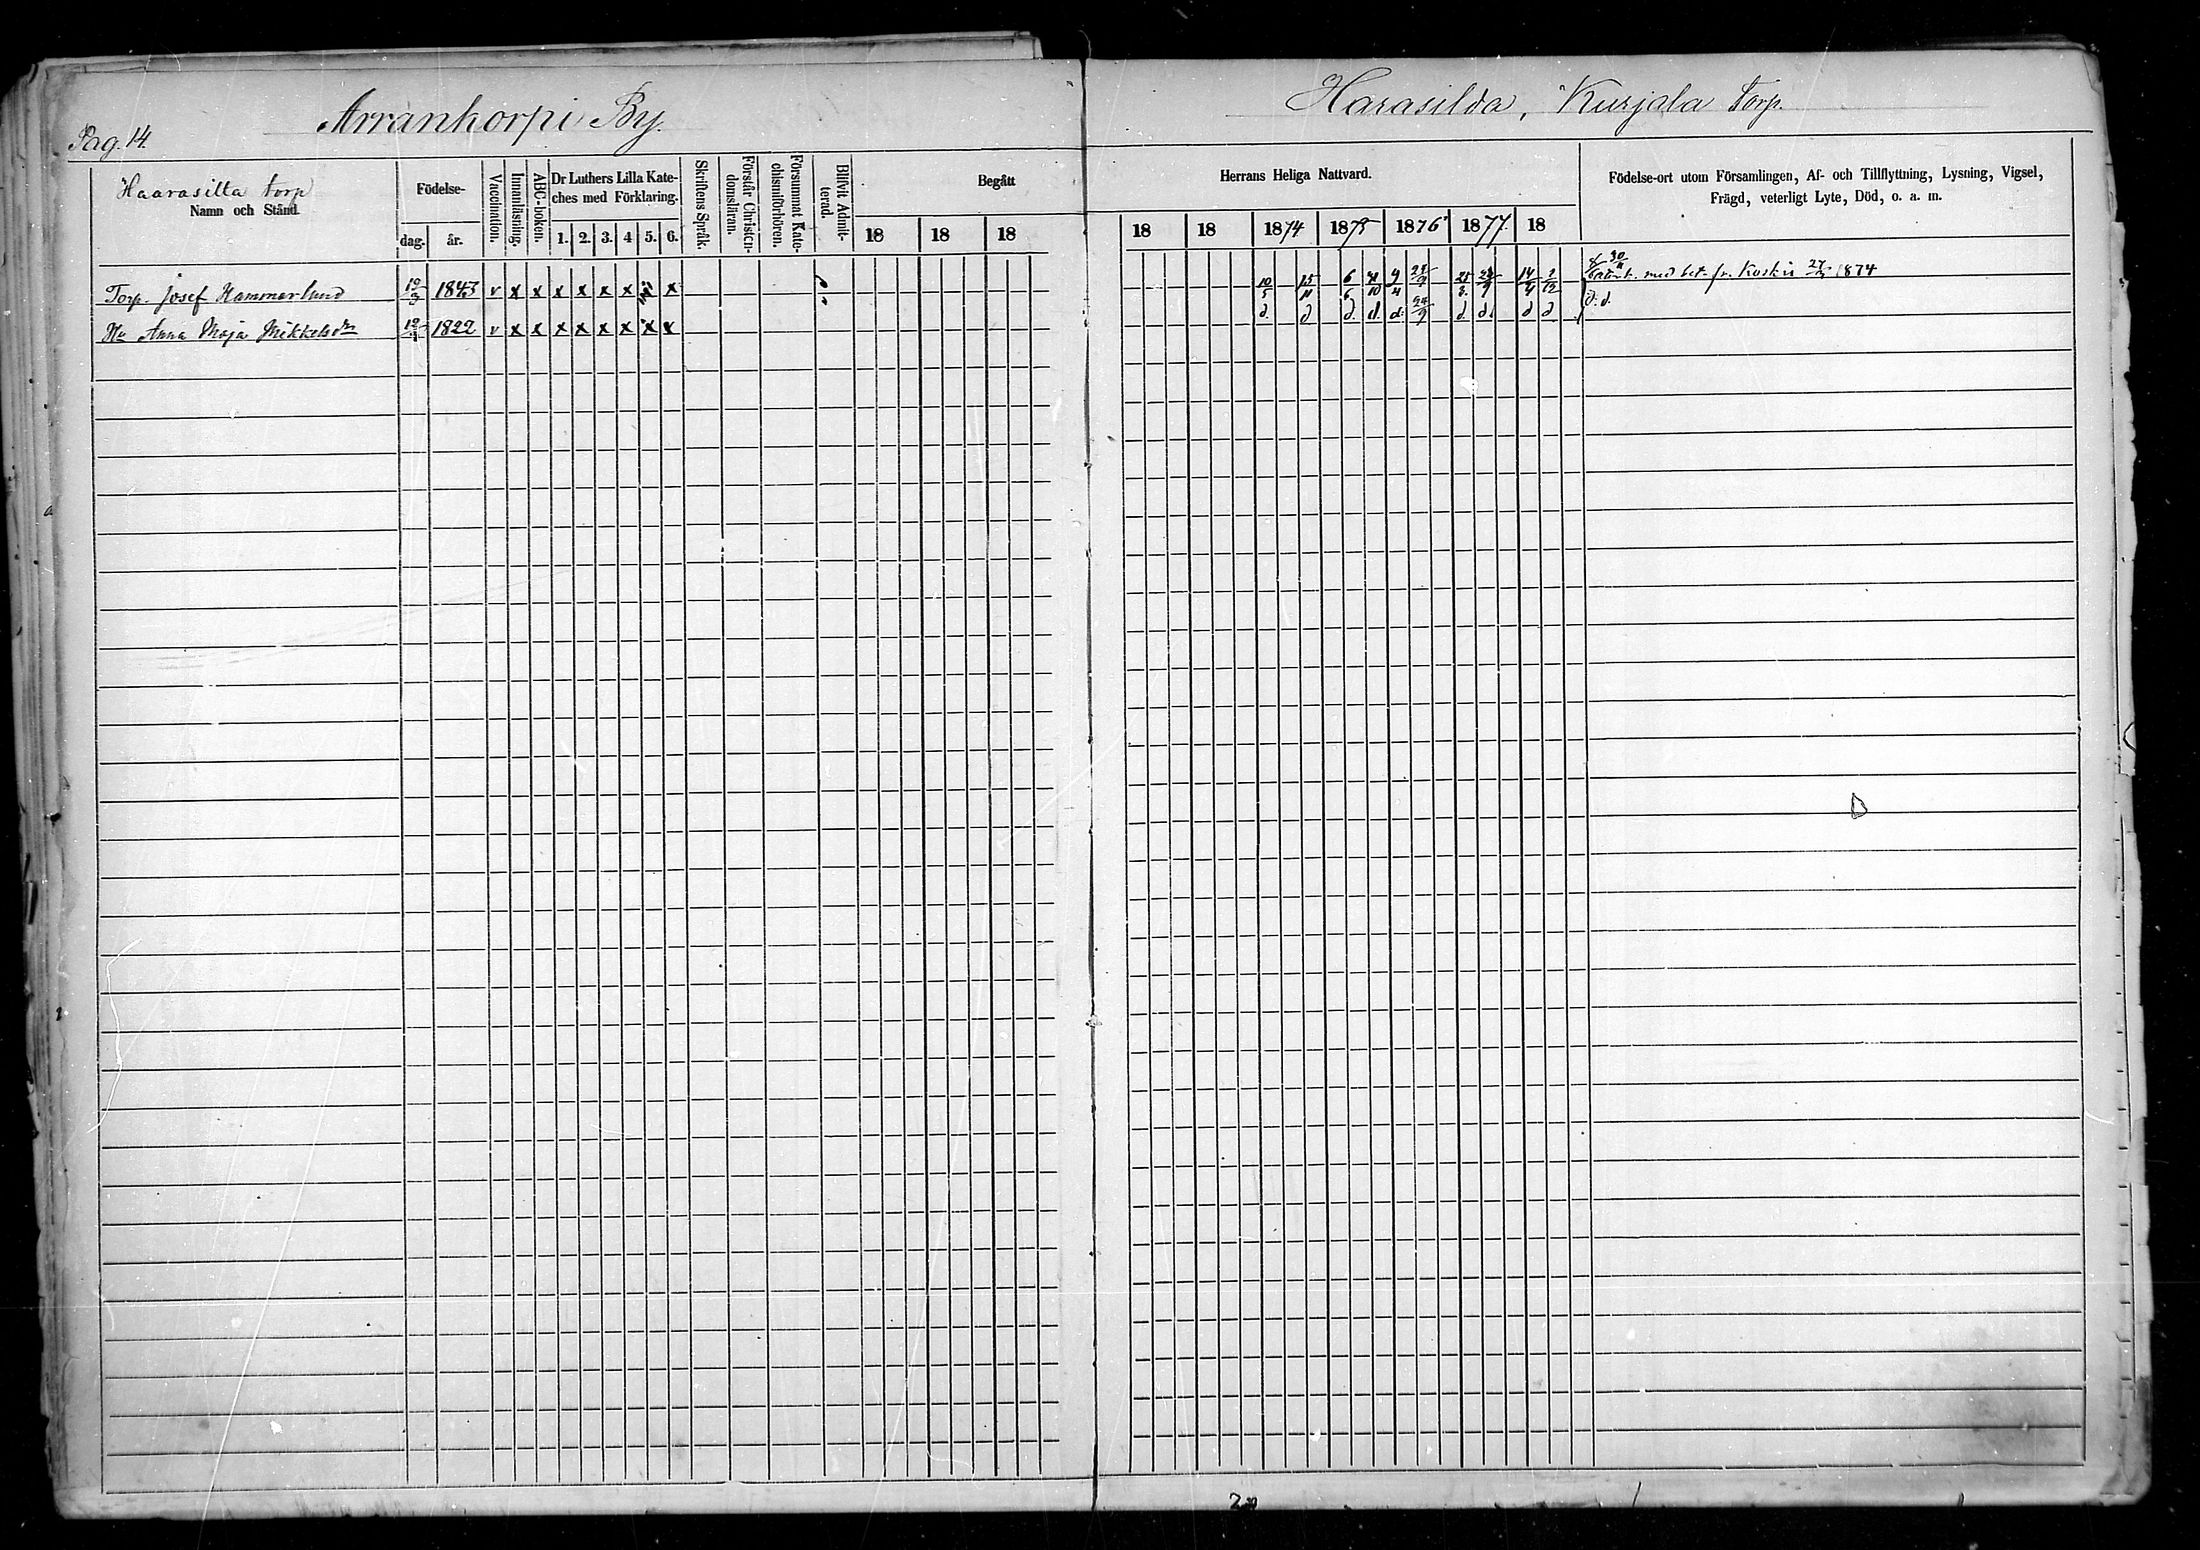 Pag. 14.
Arrankorpi By.
Harasilda, Kurjala Torp.
Haarasilta torp
Namn och Stånd.
Födelse-
dag. år.
Vaccination.
Innanläsning.
ABC-boken.
Dr Luthers Lilla Kate-
ches med Förklaring.
1. 2. 3. 4 5. 6.
Skriftens Språk.
Förstår Christen-
domsläran.
Försummat Kate-
chismiförhören.
Blifvit Admit-
terad.
Begått
18 18 18
Herrans Heliga Nattvard.
18 18 1874 1875 1876 1877. 18
Födelse-ort utom Församlingen, Af- och Tillflyttning, Lysning, Vigsel,
Frägd, veterligt Lyte, Död, o. a. m.
Torp. Josef Hammarlund 19/3 1843 v x x x x x x x x 10/5 15/11 6/6 9/4 24/9 25/3 14/4 2/12 med bet. fr. Koskis 27/3 1874
Hu Anna Maja Mikkelsdr 1822 v x x x x x x x x d. d d. d. d. 24/9 d. d. d d d. d.